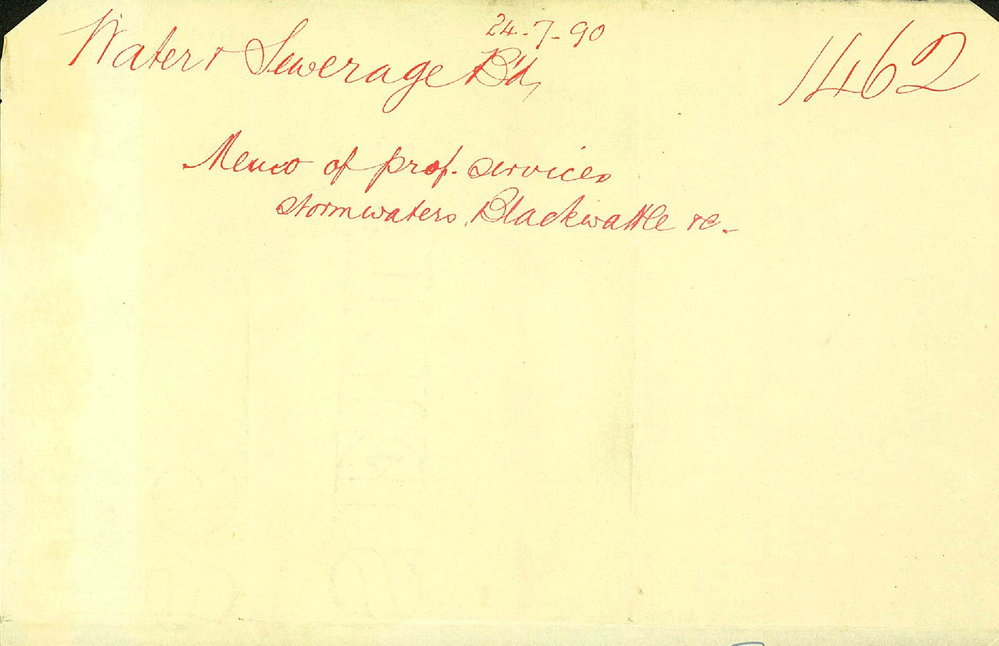 24-7-90
Water & Sewerage Bd,
1462
Memo of prof. services
stormwaters, Blackwattle &c.